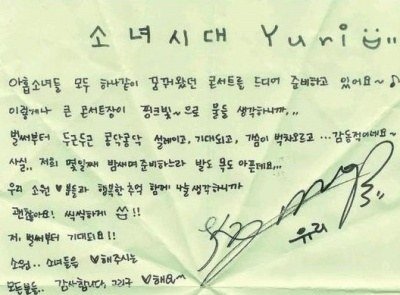 소녀시대 Yuri
아홉소녀들 모두 하나같이 꿈꿔왔던 콘서트를 드디어 준비하고 있어요~♪
이렇게나 큰 콘서트장이 핑크빛~으로 물들 생각하니까,,
벌써부터 두근두근 콩닥콩닥 설레이고, 기대되고, 가슴이 벅차오르고 ...감동적이네요~
사실.. 저희 몇일째 밤새며 준비하느라 발도 무릎도 아픈데요,,,
우리 소원♥분들과 행복한 추억 함께 나눌 생각하니까
괜찮아요! 씩씩하게 !!
저, 벌써부터 기대되요!!
소원.. 소녀들을 ♥해주시는
모든분들.. 감사합니다, 그리구 ♥해요~
유리